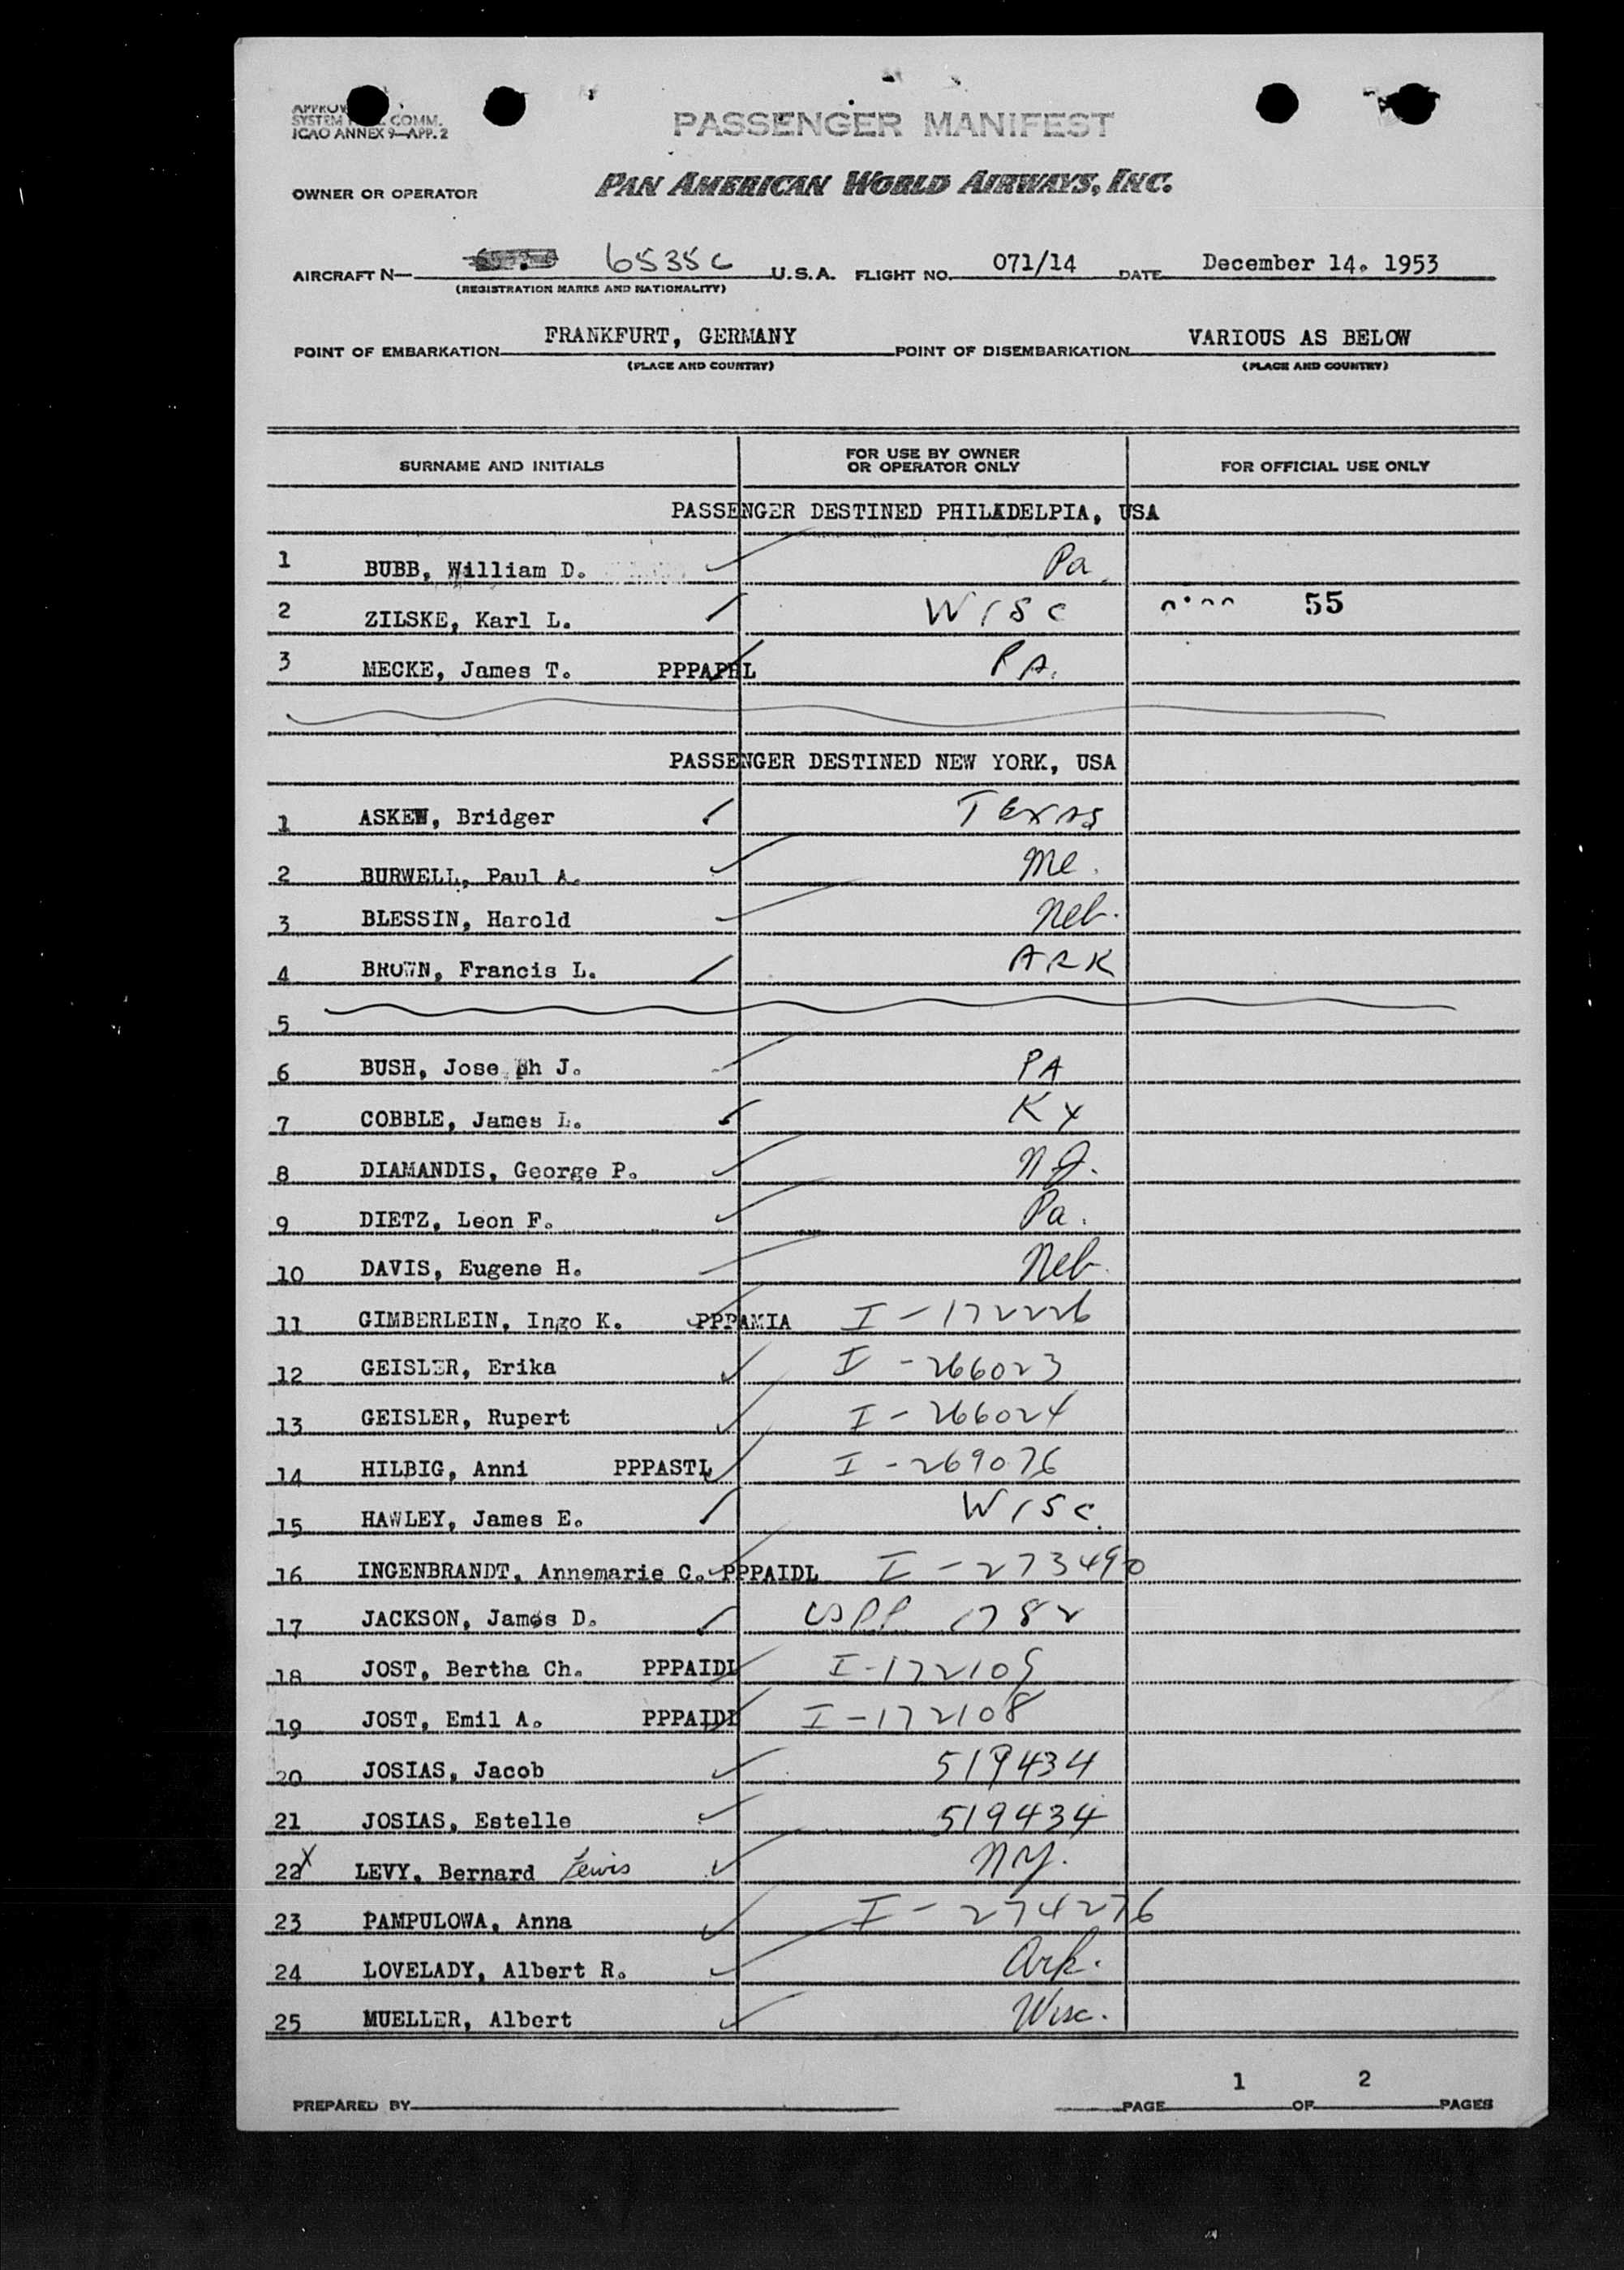 SYSTEM COMM.
ICAO ANNEX 9—APP. 2
PASSENGER MANIFEST
OWNER OR OPERATOR PAN AMERICAN WORLD AIRWAYS, INC.
AIRCRAFT N— 6535C U.S.A. FLIGHT NO. 071/14 DATE December 14. 1953
(REGISTRATION MARKS AND NATIONALITY)
POINT OF EMBARKATION FRANKFURT, GERMANY POINT OF DISEMBARKATION VARIOUS AS BELOW
(PLACE AND COUNTRY) (PLACE AND COUNTRY)
SURNAME AND INITIALS FOR USE BY OWNER OR OPERATOR ONLY FOR OFFICIAL USE ONLY
PASSENGER DESTINED PHILADELPIA, USA
1 BUBB, William D. Pa.
2 ZILSKE, Karl L. WISC 55
3 MECKE, James T. PPPAPHL PA.
PASSENGER DESTINED NEW YORK, USA
1 ASKEW, Bridger Texas
2 BURWELL, Paul A. Me.
3 BLESSIN, Harold Neb.
4 BROWN, Francis L. ARK
5
6 BUSH, Jose ph J. PA
7 COBBLE, James L. Ky
8 DIAMANDIS, George P. N.J.
9 DIETZ, Leon F. Pa.
10 DAVIS, Eugene H. Neb.
11 GIMBERLEIN, Ingo K. PPPAMIA I-172226
12 GEISLER, Erika I-266023
13 GEISLER, Rupert I-266024
14 HILBIG, Anni PPPASTL I-269076
15 HAWLEY, James E. WISC.
16 INGENBRANDT, Annemarie C. PPPAIDL I-273490
17 JACKSON, James D. USPP 1782
18 JOST, Bertha Ch. PPPAIDL I-172109
19 JOST, Emil A. PPPAIDL I-172108
20 JOSIAS, Jacob 519434
21 JOSIAS, Estelle 519434
22 X LEVY, Bernard Lewis N.Y.
23 PAMPULOWA, Anna I-274276
24 LOVELADY, Albert R. Ark.
25 MUELLER, Albert Wisc.
PREPARED BY PAGE 1 OF 2 PAGES